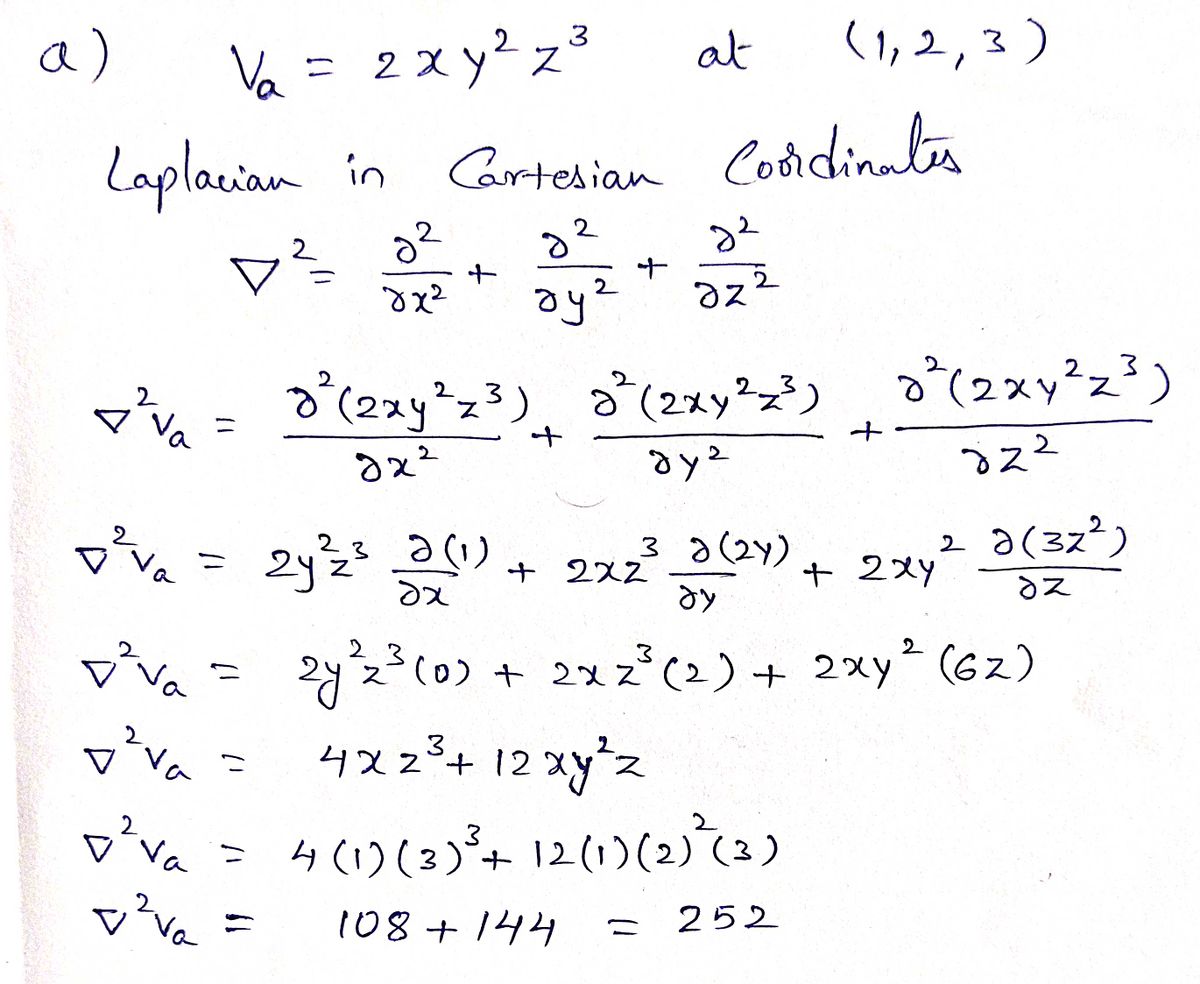 a) Vₐ = 2xy²z³ at (1,2,3)
Laplacian in Cartesian Coordinates
∇² = ∂²/∂x² + ∂²/∂y² + ∂²/∂z²
∇²Vₐ = ∂²(2xy²z³)/∂x² + ∂²(2xy²z³)/∂y² + ∂²(2xy²z³)/∂z²
∇²Vₐ = 2y²z³ ∂(1)/∂x + 2xz³ ∂(2y)/∂y + 2xy² ∂(3z²)/∂z
∇²Vₐ = 2y²z³(0) + 2xz³(2) + 2xy²(6z)
∇²Vₐ = 4xz³ + 12xy²z
∇²Vₐ = 4(1)(3)³ + 12(1)(2)²(3)
∇²Vₐ = 108 + 144 = 252